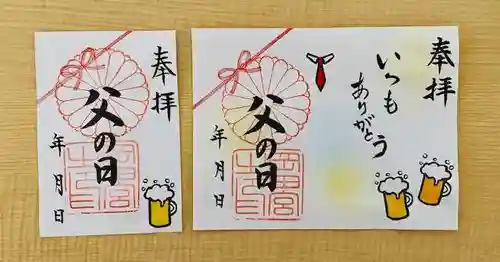 奉拝
父の日
年 月 日
奉拝
いつも
ありがとう
父の日
年 月 日